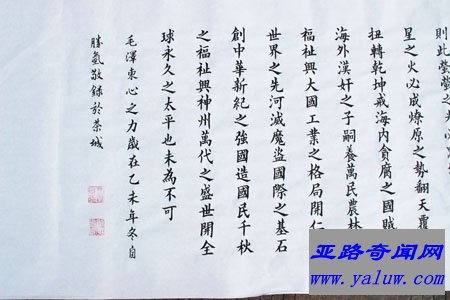 則此熒熒之
星之火必成燎原之勢翻天覆
扭轉乾坤戒海內貪腐之國賊
海外漢奸之子嗣養萬民農林
福祉興大國工業之格局開仁
世界之先河滅魔盜國際之基石
創中華新紀之強國造國民千秋
之福祉興神州萬代之盛世開全
球永久之太平也未為不可
毛澤東心之力歲在乙未年冬自
勝氣敬錄於茶城
亚路奇闻网
www.yaluw.com